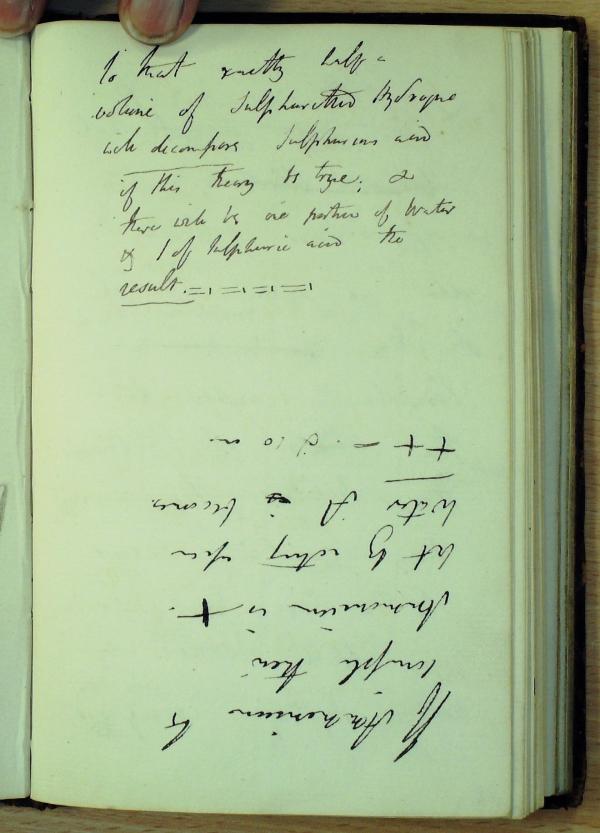 So that exactly half a
volume of Sulphuretted Hydrogne
will decompose Sulphurous acid
if this theory be true; &
there will be one portion of Water
& 1 of Sulphuric acid the
result. = 1 = 1 = 1 = 1
If Ammonium be
simple then
Ammonium is +.
but by acting upon
Water it becomes
+ + =